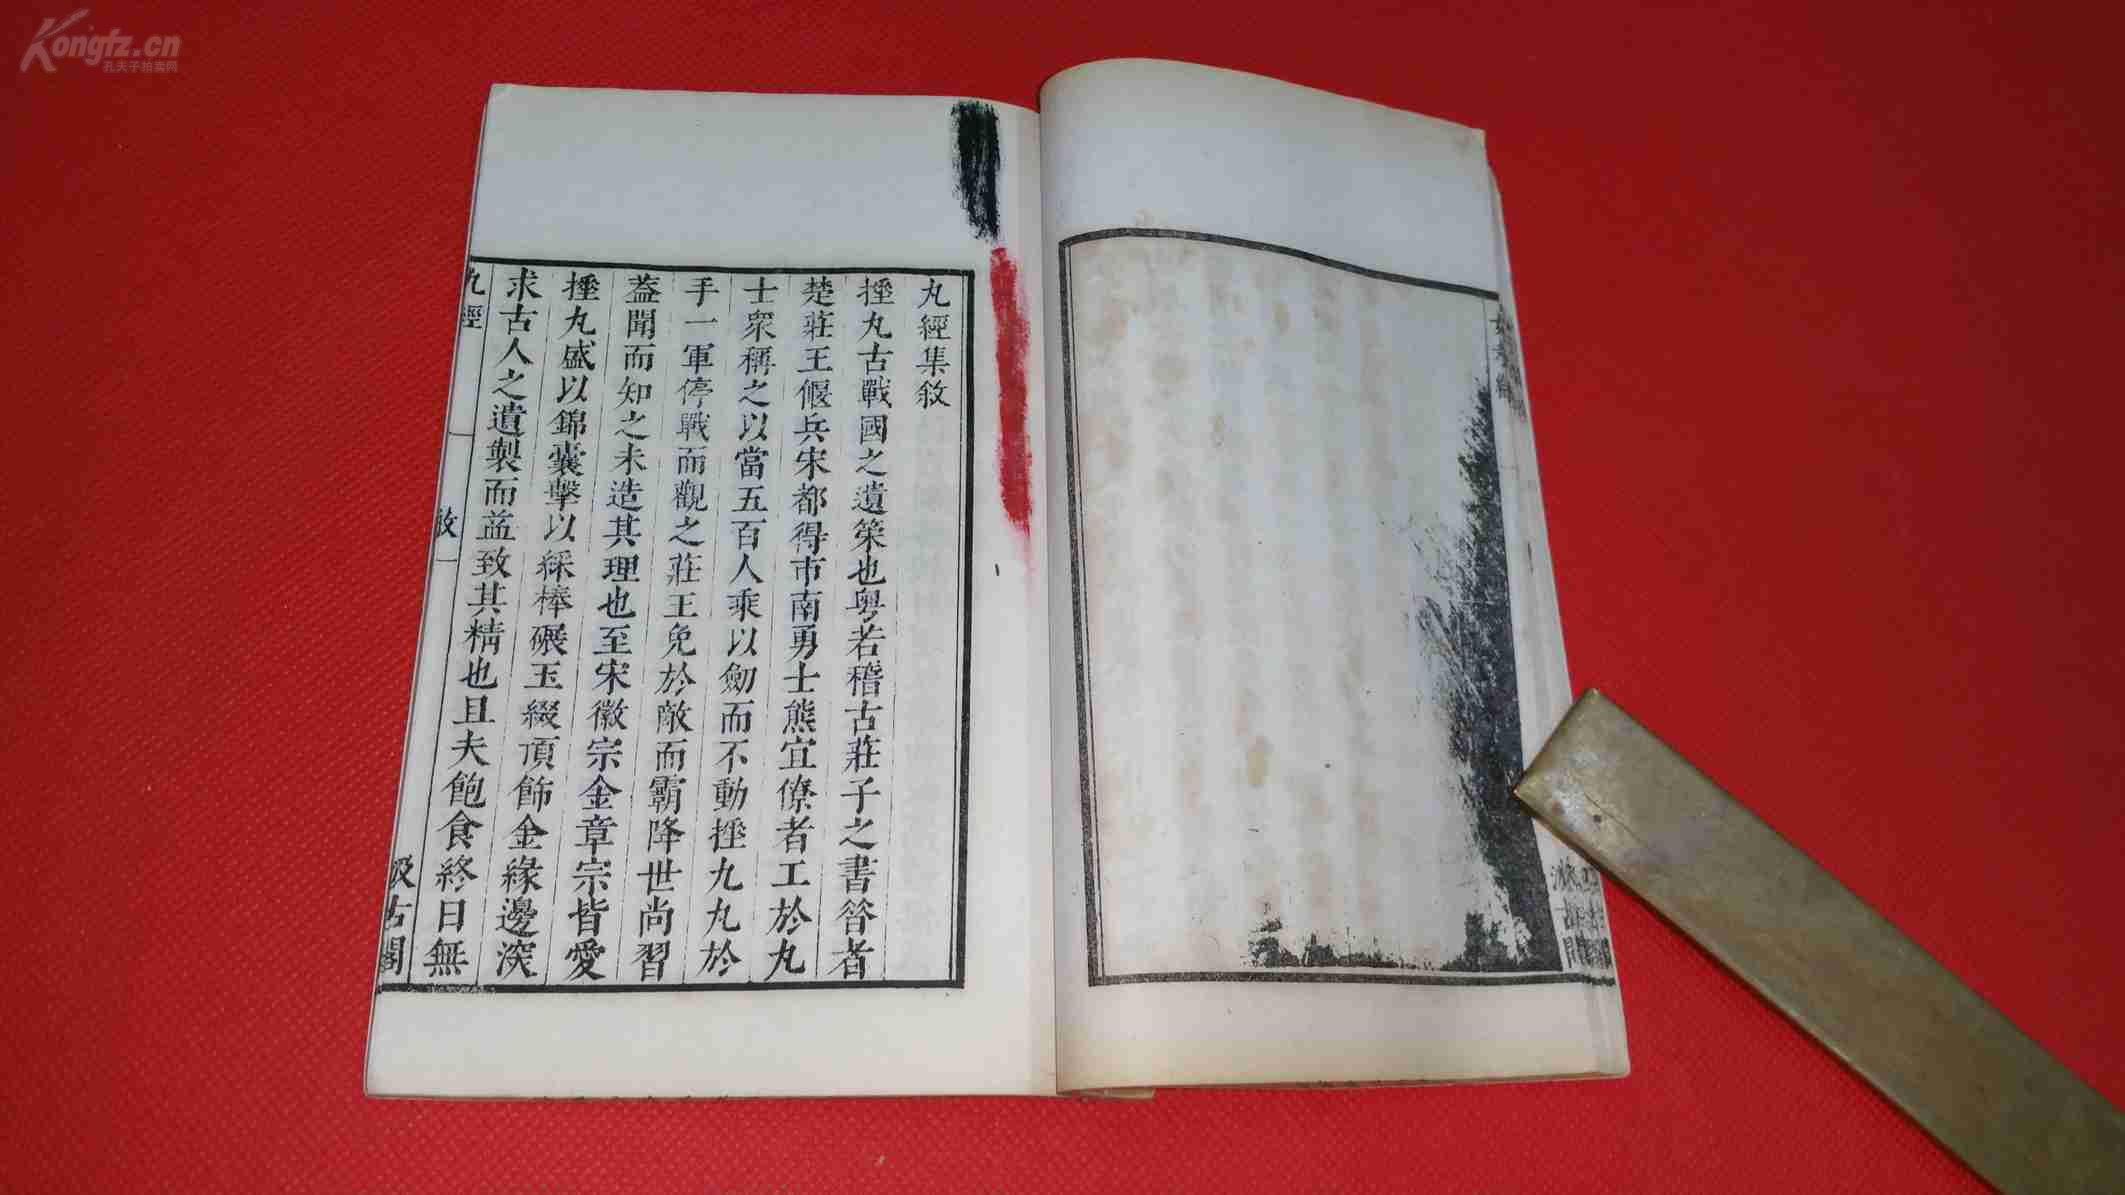 Kongfz.cn
孔夫子拍卖网
丸經集敘
捶丸古戰國之遺策也粤若稽古莊子之書昝者
楚莊王偃兵宋都得市南勇士熊宜僚者工於丸
士衆稱之以當五百人乘以劒而不動捶九丸於
手一軍停戰而觀之莊王免於敵而霸降世尚習
葢聞而知之未造其理也至宋徽宗金章宗皆愛
捶丸盛以錦囊擊以綵棒碾玉綴頂飾金緣邊深
求古人之遺製而益致其精也且夫飽食終日無
丸經
敘
汲古閣